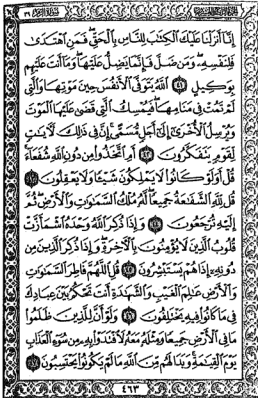 ٣٩
إِنَّآ أَنزَلْنَا عَلَيْكَ ٱلْكِتَٰبَ لِلنَّاسِ بِٱلْحَقِّ فَمَنِ ٱهْتَدَىٰ
فَلِنَفْسِهِۦ وَمَن ضَلَّ فَإِنَّمَا يَضِلُّ عَلَيْهَا وَمَآ أَنتَ عَلَيْهِم
بِوَكِيلٍ ٤١ ٱللَّهُ يَتَوَفَّى ٱلْأَنفُسَ حِينَ مَوْتِهَا وَٱلَّتِى
لَمْ تَمُتْ فِى مَنَامِهَا فَيُمْسِكُ ٱلَّتِى قَضَىٰ عَلَيْهَا ٱلْمَوْتَ
وَيُرْسِلُ ٱلْأُخْرَىٰٓ إِلَىٰٓ أَجَلٍ مُّسَمًّى إِنَّ فِى ذَٰلِكَ لَءَايَٰتٍ
لِّقَوْمٍ يَتَفَكَّرُونَ ٤٢ أَمِ ٱتَّخَذُوا۟ مِن دُونِ ٱللَّهِ شُفَعَآءَ
قُلْ أَوَلَوْ كَانُوا۟ لَا يَمْلِكُونَ شَيْـًٔا وَلَا يَعْقِلُونَ ٤٣
قُل لِّلَّهِ ٱلشَّفَٰعَةُ جَمِيعًا لَّهُۥ مُلْكُ ٱلسَّمَٰوَٰتِ وَٱلْأَرْضِ ثُمَّ
إِلَيْهِ تُرْجَعُونَ ٤٤ وَإِذَا ذُكِرَ ٱللَّهُ وَحْدَهُ ٱشْمَأَزَّتْ
قُلُوبُ ٱلَّذِينَ لَا يُؤْمِنُونَ بِٱلْءَاخِرَةِ وَإِذَا ذُكِرَ ٱلَّذِينَ مِن
دُونِهِۦٓ إِذَا هُمْ يَسْتَبْشِرُونَ ٤٥ قُلِ ٱللَّهُمَّ فَاطِرَ ٱلسَّمَٰوَٰتِ
وَٱلْأَرْضِ عَٰلِمَ ٱلْغَيْبِ وَٱلشَّهَٰدَةِ أَنتَ تَحْكُمُ بَيْنَ عِبَادِكَ
فِى مَا كَانُوا۟ فِيهِ يَخْتَلِفُونَ ٤٦ وَلَوْ أَنَّ لِلَّذِينَ ظَلَمُوا۟
مَا فِى ٱلْأَرْضِ جَمِيعًا وَمِثْلَهُۥ مَعَهُۥ لَٱفْتَدَوْا۟ بِهِۦ مِن سُوٓءِ ٱلْعَذَابِ
يَوْمَ ٱلْقِيَٰمَةِ وَبَدَا لَهُم مِّنَ ٱللَّهِ مَا لَمْ يَكُونُوا۟ يَحْتَسِبُونَ ٤٧
٤٦٣